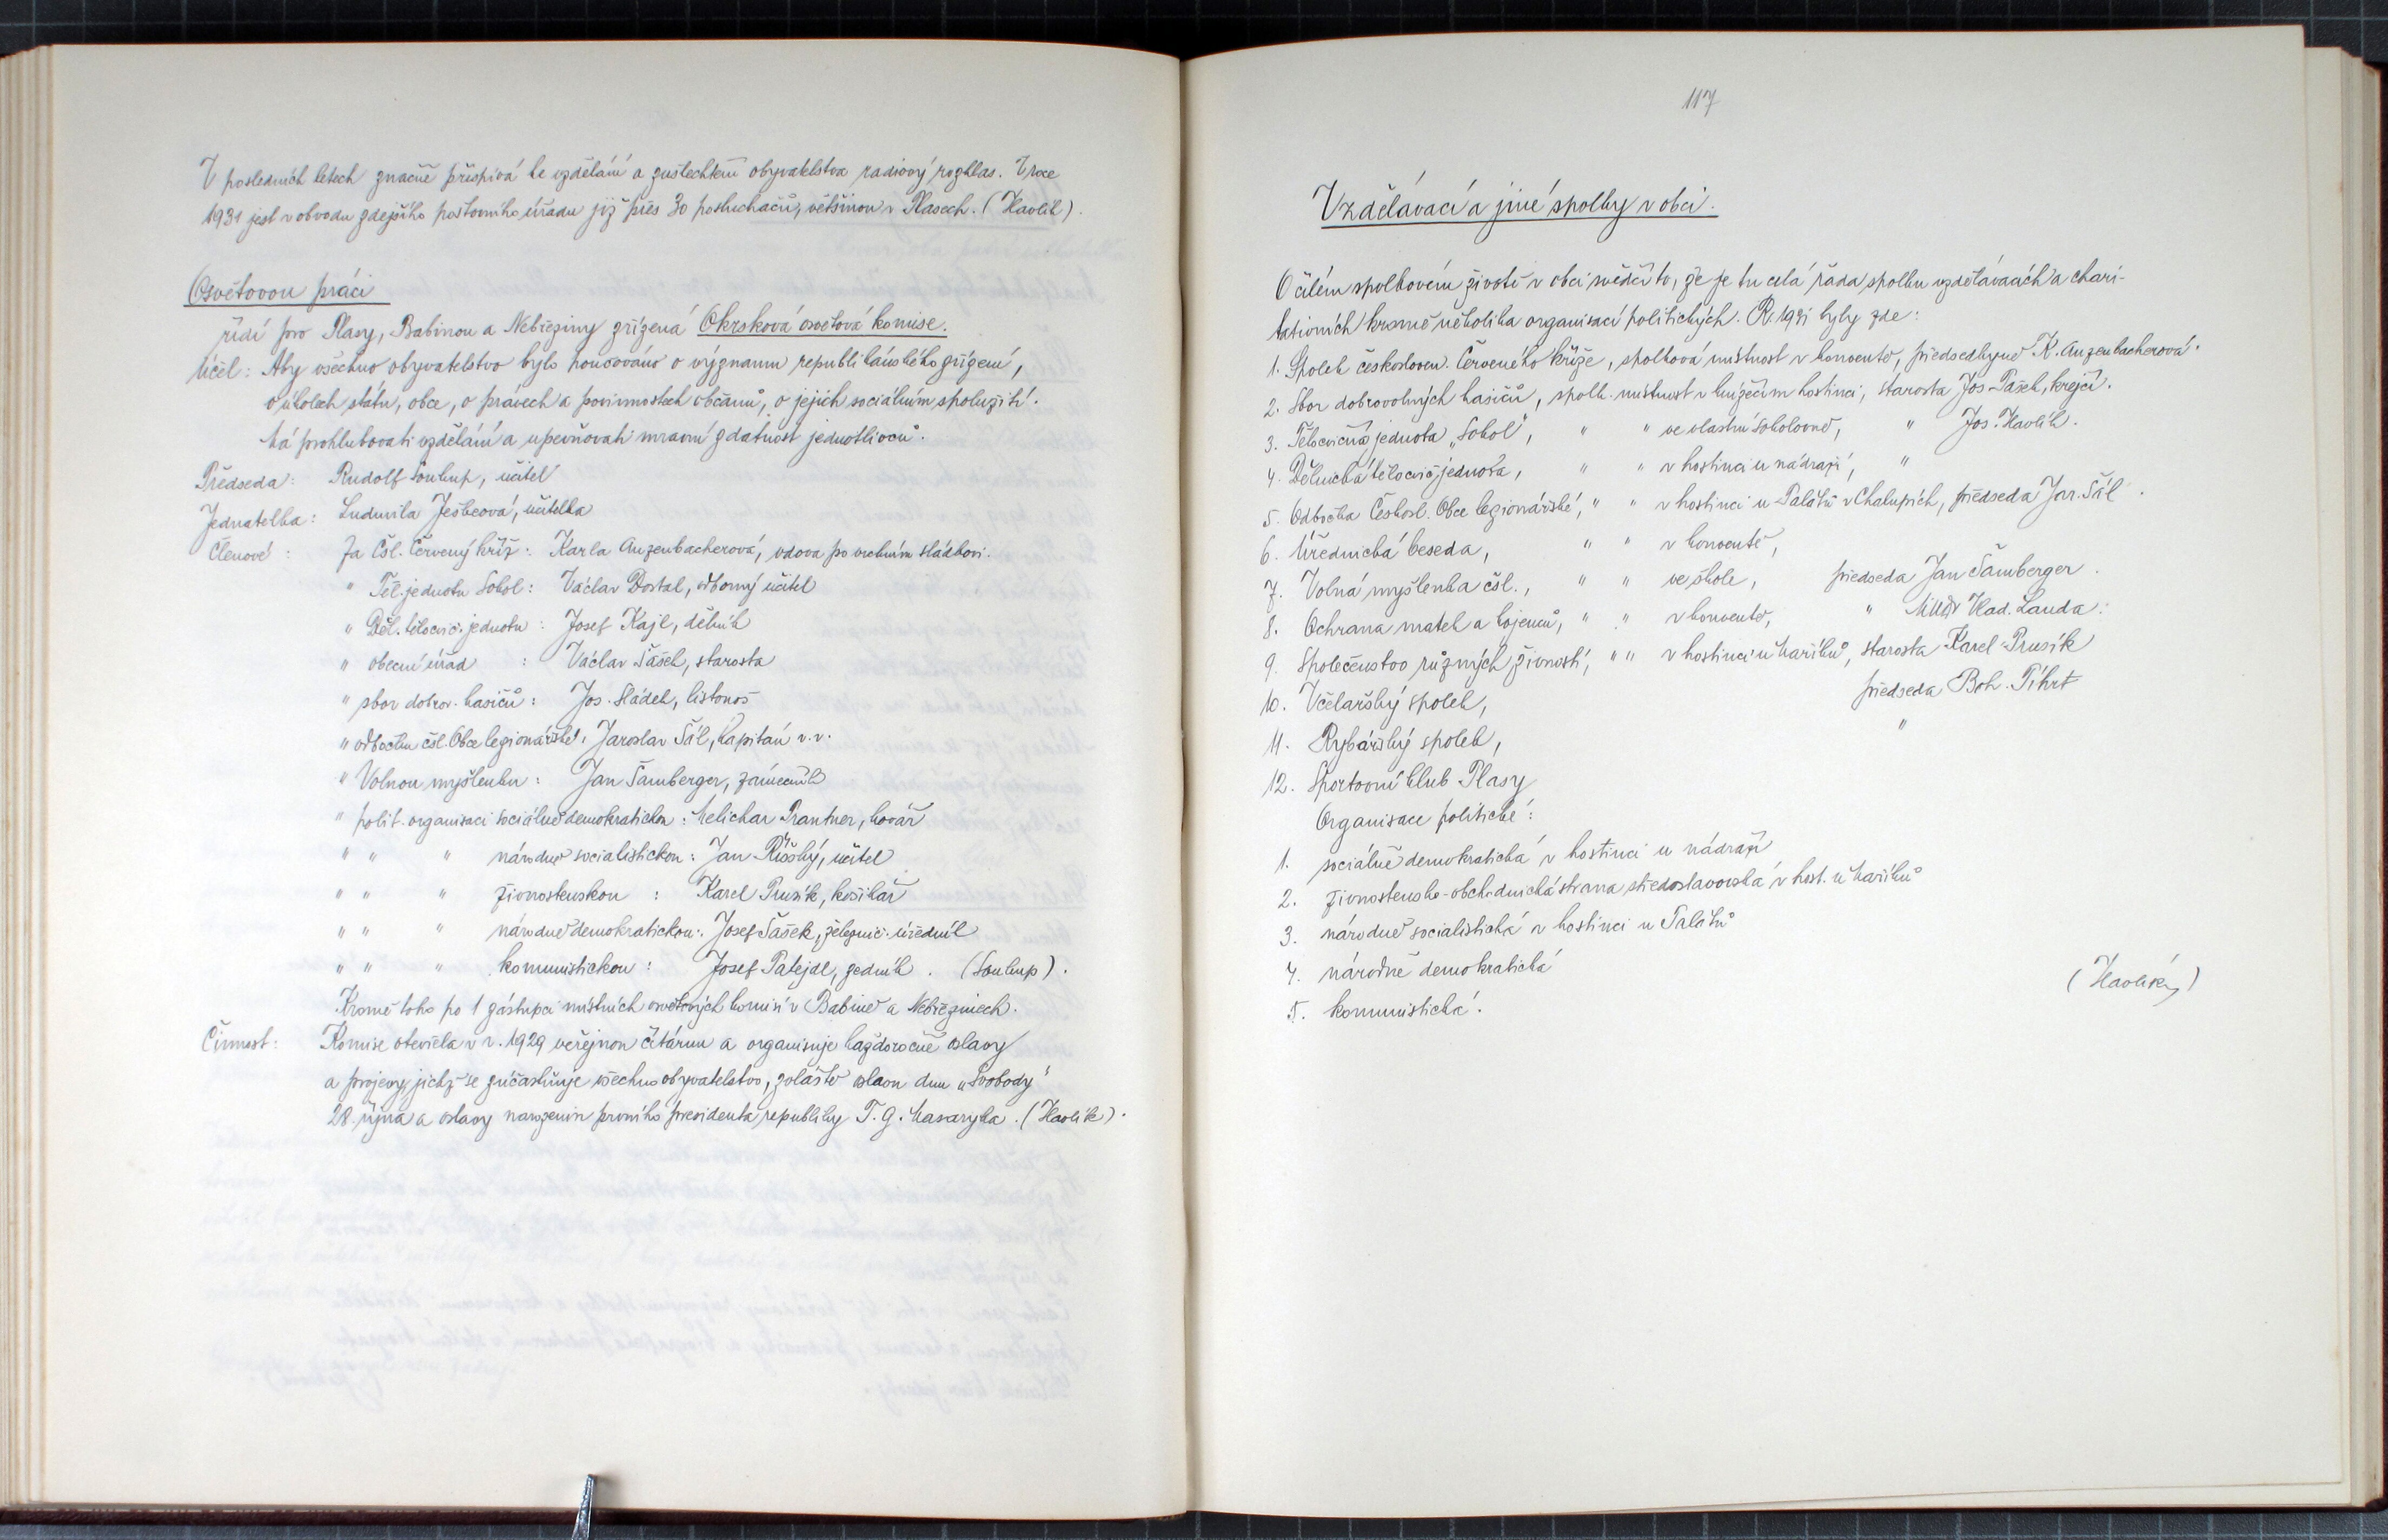 V posledních létech značně přispívá ke vzdělání a zušlechtění obyvatelstva radiový rozhlas. V roce
1931 jest v obvodu zdejšího poštovního úřadu již přes 30 posluchačů, většinou v Plasech. (Havlík).
Osvětovou práci
řídí pro Plasy, Babinou a Nebřeziny zřízená Okrsková osvětová komise.
Účel: Aby všechno obyvatelstvo bylo poučováno o významu republikánského zřízení,
o úkolech státu, obce, o právech a povinnostech občanů, o jejich sociálním spolužití.
Má prohlubovati vzdělání a upevňovati mravní zdatnost jednotlivců.
Předseda: Rudolf Soukup, učitel
Jednatelka: Ludmila Ješkeová, učitelka
Členové: Za Čsl. Červený kříž: Karla Auzenbacherová, vdova po vrchním sládkovi.
" Těl. jednotu Sokol: Václav Dostal, odborný učitel
" Děl. tělocvič. jednotu: Josef Kajl, dělník
" obecní úřad : Václav Šašek, starosta
" sbor dobrov. hasičů: Jos. Sládek, listonoš
" odbočku čsl. Obce legionářské: Jaroslav Šál, kapitán v.v.
" Volnou myšlenku: Jan Šamberger, zámečník
" polit. organisaci sociálně demokratickou: Melichar Prantner, kovář
" " " národně socialistickou: Jan Říšský, učitel
" " " živnostenskou : Karel Prusík, košíkář
" " " národně demokratickou: Josef Šašek, železnič. úředník
" " " komunistickou: Josef Patejdl, zedník. (Soukup).
Kromě toho po 1 zástupci místních osvětových komisí v Babině a Nebřezinech.
Činnost: Komise otevřela v r. 1929 veřejnou čítárnu a organisuje každoročně oslavy
a projevy, jichž se zúčastňuje všechno obyvatelstvo, zvláště oslavu dnu „Svobody"
28. října a oslavy narozenin prvního presidenta republiky T. G. Masaryka. (Havlík).
117
Vzdělávací a jiné spolky v obci.
O čilém spolkovém životě v obci svědčí to, že je tu celá řada spolků vzdělávacích a chari-
tativních kromě několika organisací politických. R. 1931 byly zde:
1. Spolek českosloven. Červeného kříže, spolková místnost v konventě, předsedkyně K. Auzenbacherová.
2. Sbor dobrovolných hasičů, spolk. místnost v knížecím hostinci, starosta Jos. Pašek, krejčí.
3. Tělocvičná jednota „Sokol", " " ve vlastní sokolovně, " Jos. Havlík.
4. Dělnická tělocvič. jednota, " " v hostinci u nádraží, "
5. Odbočka Českosl. Obce legionářské, " " v hostinci u Palátů v Chalupích, předseda Jar. Šál.
6. Úřednická beseda, " " v konventě,
7. Volná myšlenka čsl., " " ve škole, předseda Jan Šamberger.
8. Ochrana matek a kojenců, " " v konventě, " MUDr Vlad. Lauda.
9. Společenstvo různých živností, " " v hostinci u Maříků, starosta Karel Prusík
10. Včelařský spolek, předseda Boh. Tihrt
11. Rybářský spolek, "
12. Sportovní klub Plasy
Organisace politické:
1. sociálně demokratická v hostinci u nádraží
2. živnostensko-obchodnická strana středostavovská v host. u Maříků
3. národně socialistická v hostinci u Palátů
4. národně demokratická
5. komunistická.
(Havlík)